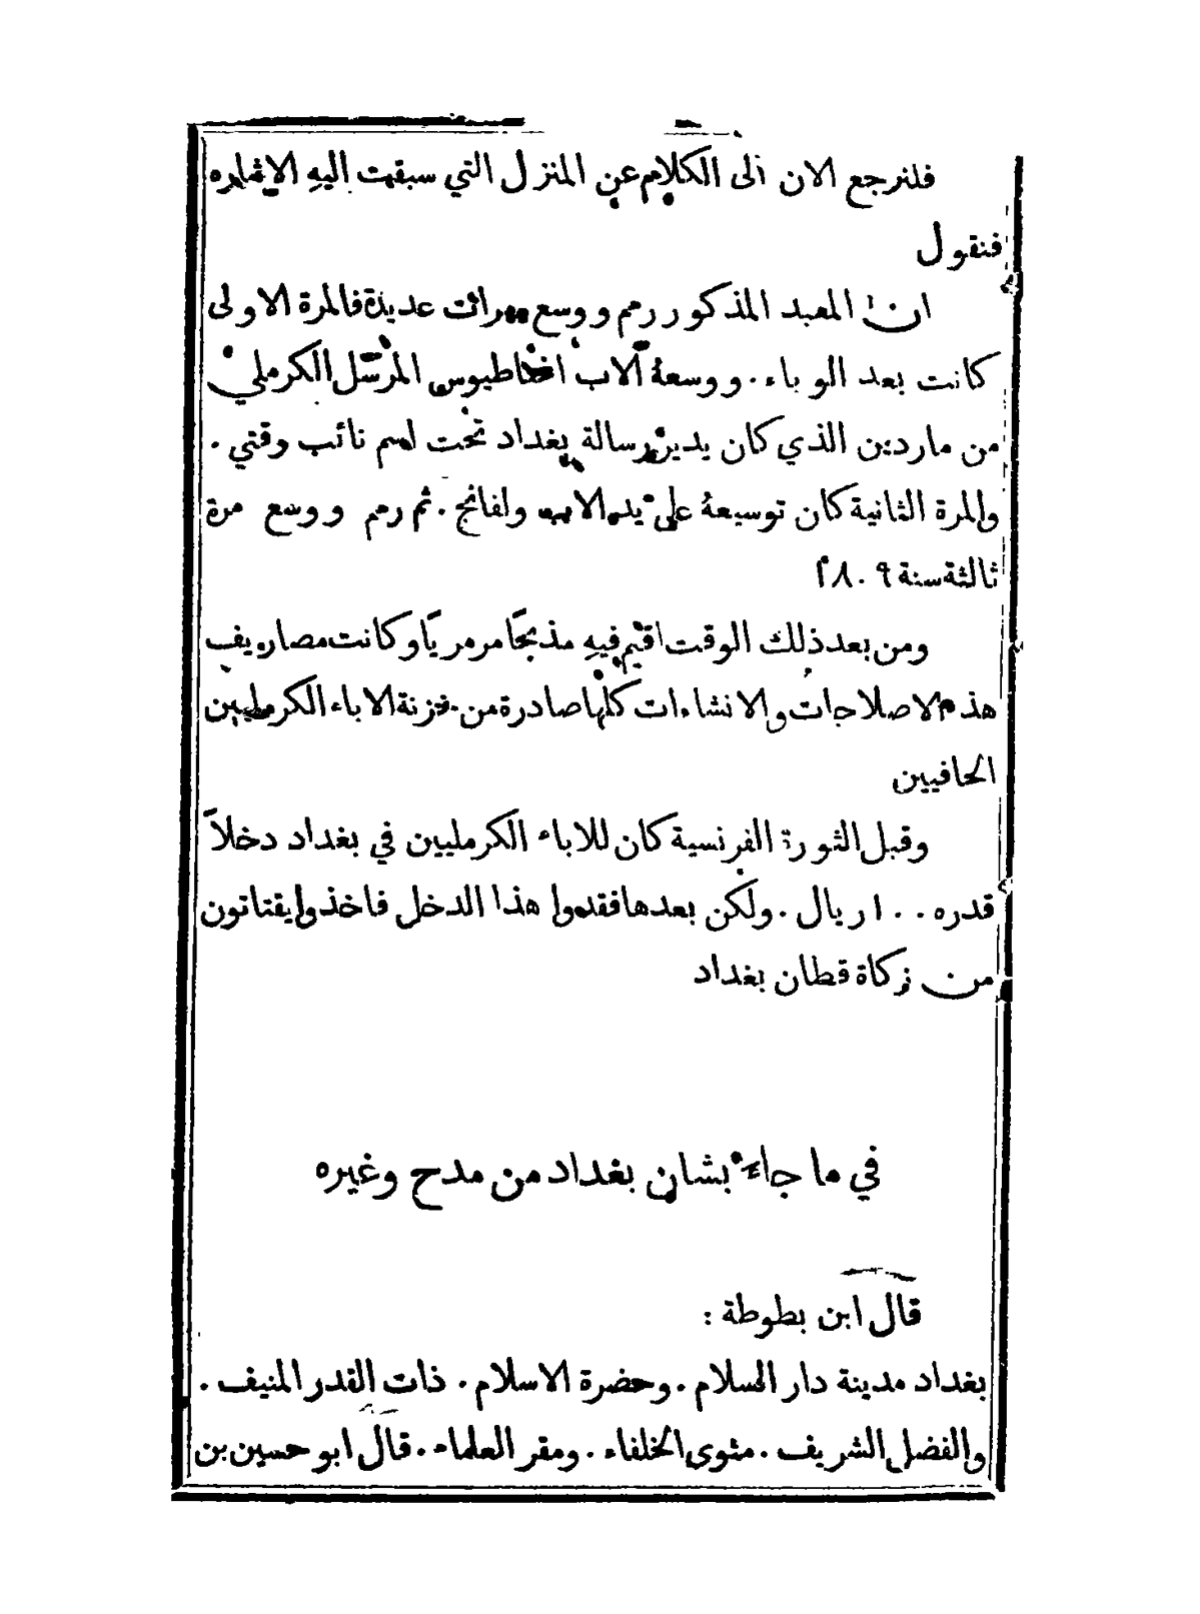 فلنرجع الان الى الكلام عن المنزل التي سبقت اليهِ الاشاره
فنقول
ان المعبد المذكور رمم ووسع مرات عديدة فالمرة الاولى
كانت بعد الوباء. ووسعهُ الاب المرسل الكرملي
من ماردين الذي كان يدير رسالة بغداد تحت اسم نائب وقتي.
والمرة الثانية كان توسيعهُ على يد الاب ولفانج. ثم رمم ووسع مرة
ثالثة سنة
ومن بعد ذلك الوقت اقيم فيهِ مذبحًا مرمريًا وكانت مصاريف
هذه الاصلاحات والانشاءات كلها صادرة من خزنة الاباء الكرمليين
الحافيين
وقبل الثورة الفرنسية كان للاباء الكرمليين في بغداد دخلاً
قدره ١٠٠ ريال. ولكن بعدها فقدوا هذا الدخل فاخذوا يقتاتون
من زكاة قطان بغداد
في ما جاء بشان بغداد من مدح وغيره
قال ابن بطوطة :
بغداد مدينة دار السلام. وحضرة الاسلام. ذات القدر المنيف.
والفضل الشريف. مثوى الخلفاء. ومقر العلماء. قال ابو حسين بن